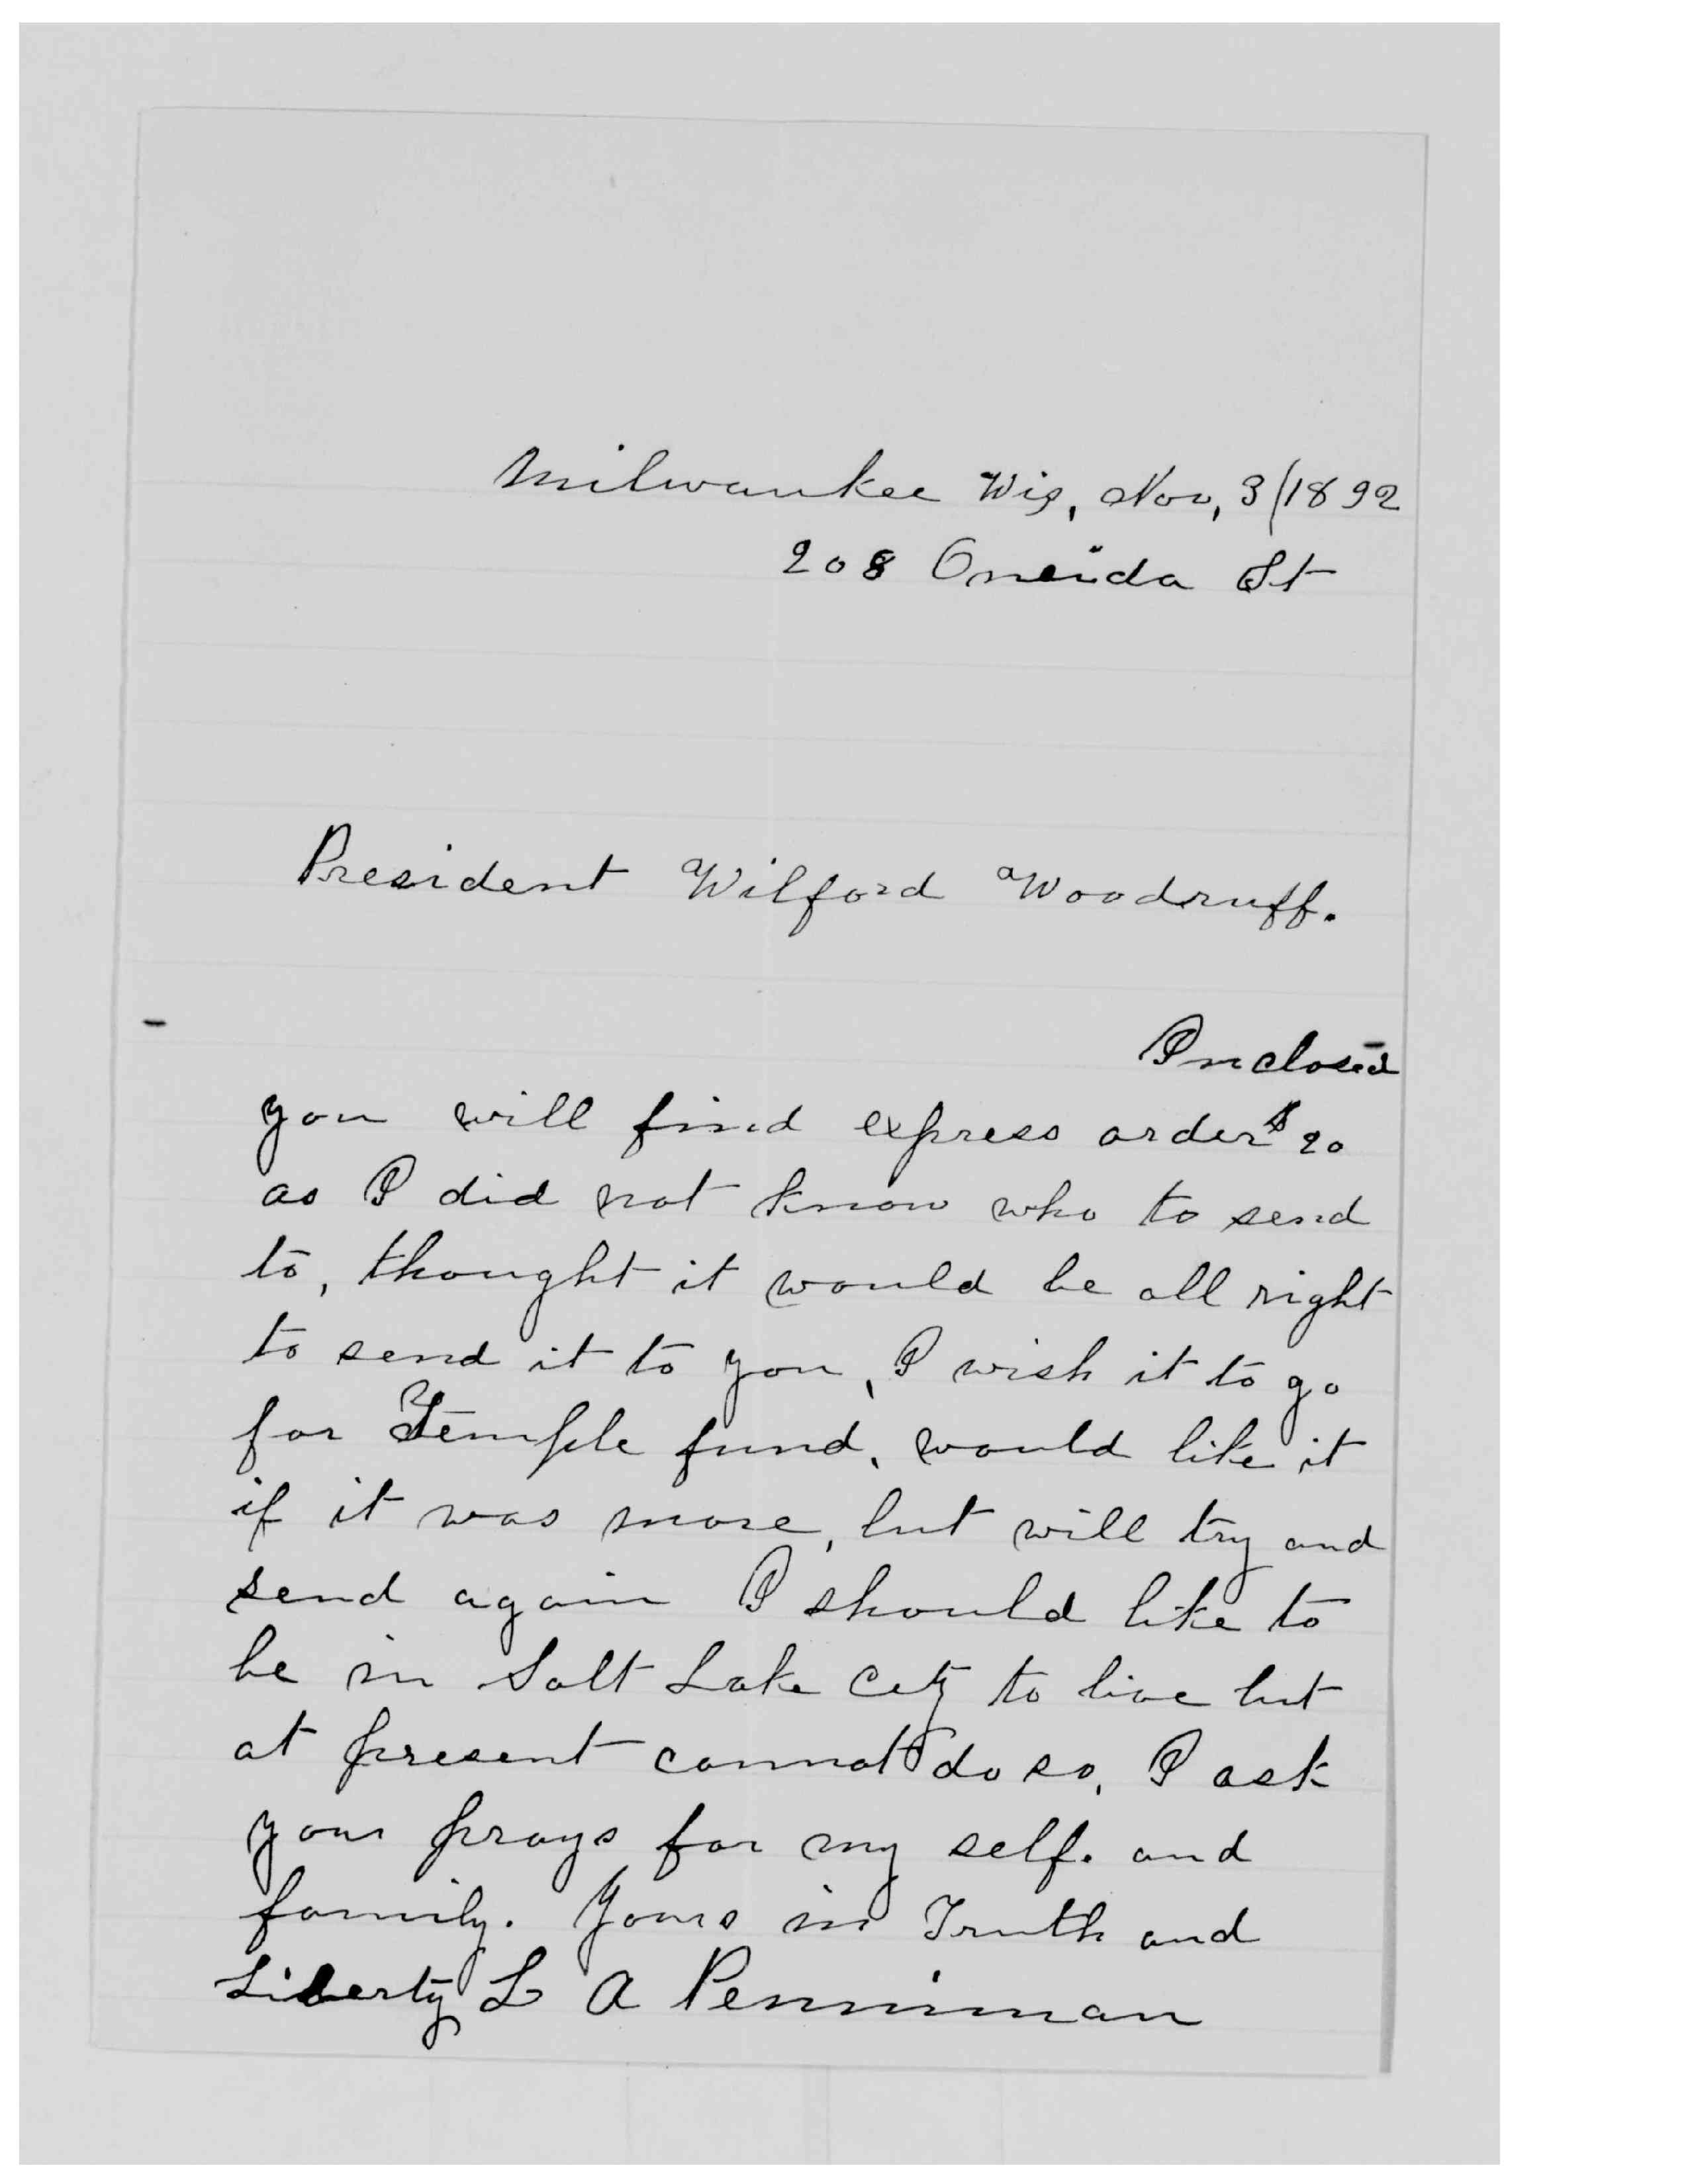 Milwaukee Wis, Nov, 3/1892
208 Oneida St
President Wilford Woodruff.
Inclosed
you will find express order $20
as I did not know who to send
to, thought it would be all right
to send it to you, I wish it to go
for Temple fund, would like it
if it was more, but will try and
send again I should like to
be in Salt Lake City to live but
at present cannot do so, I ask
your prays for my self. and
family. Yours in Truth and
Liberty L A Penniman